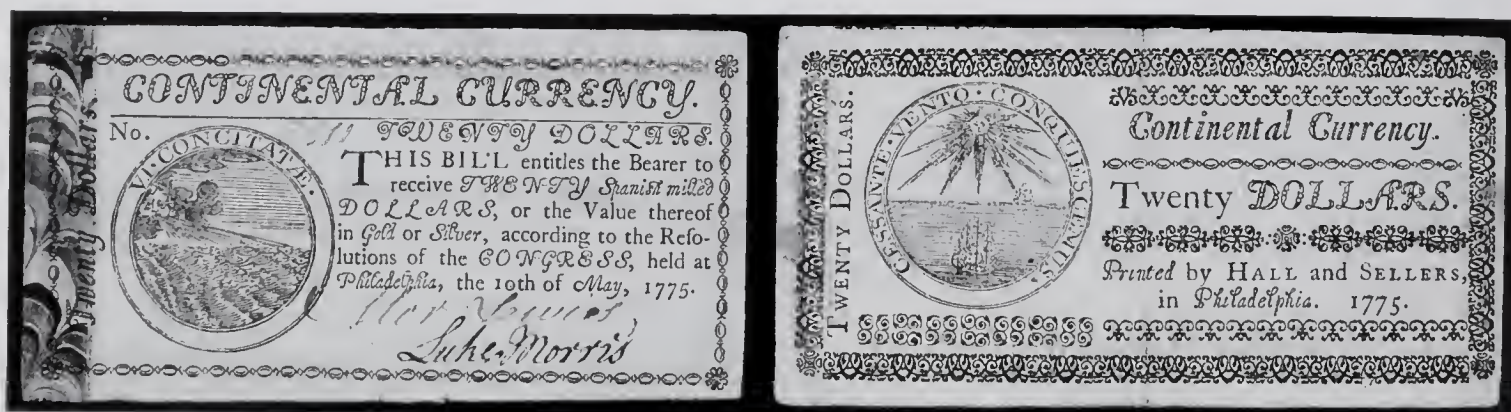 CONTINENTAL CURRENCY.
Twenty Dollars.
No.
VI·CONCITATÆ·
TWENTY DOLLARS.
THIS BILL entitles the Bearer to
receive TWENTY Spanish milled
DOLLARS, or the Value thereof
in Gold or Silver, according to the Reſo-
lutions of the CONGRESS, held at
Philadelphia, the 10th of May, 1775.
Luke Morris
TWENTY DOLLARS.
CESSANTE·VENTO·CONQUIESCEMUS·
Continental Currency.
Twenty DOLLARS.
Printed by HALL and SELLERS,
in Philadelphia. 1775.